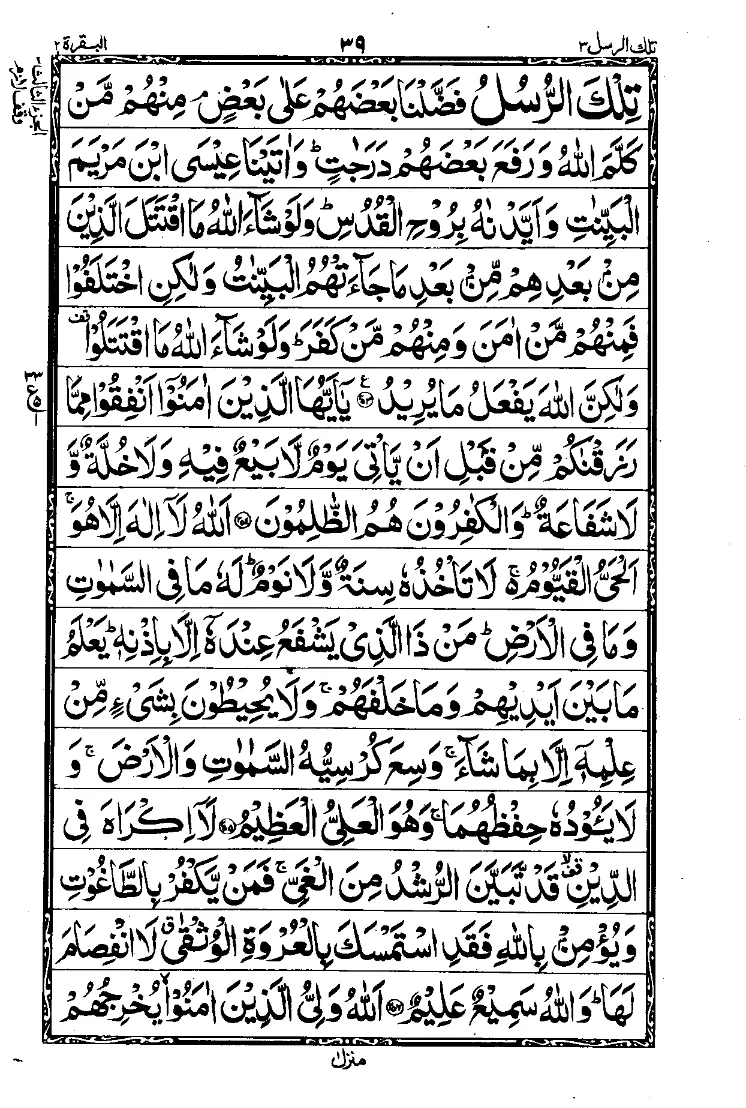 تلك الرسل ٣
٣٩
البقرة ٢
الجزء الثالث
وقف لازم
تِلْكَ الرُّسُلُ فَضَّلْنَا بَعْضَهُمْ عَلٰى بَعْضٍ ۘ مِنْهُمْ مَّنْ
كَلَّمَ اللّٰهُ وَرَفَعَ بَعْضَهُمْ دَرَجٰتٍ ؕ وَاٰتَيْنَا عِيْسَى ابْنَ مَرْيَمَ
الْبَيِّنٰتِ وَاَيَّدْنٰهُ بِرُوْحِ الْقُدُسِ ؕ وَلَوْ شَآءَ اللّٰهُ مَا اقْتَتَلَ الَّذِيْنَ
مِنْۢ بَعْدِهِمْ مِّنْۢ بَعْدِ مَا جَآءَتْهُمُ الْبَيِّنٰتُ وَلٰكِنِ اخْتَلَفُوْا
فَمِنْهُمْ مَّنْ اٰمَنَ وَمِنْهُمْ مَّنْ كَفَرَ ؕ وَلَوْ شَآءَ اللّٰهُ مَا اقْتَتَلُوْا قف
وَلٰكِنَّ اللّٰهَ يَفْعَلُ مَا يُرِيْدُ ﴿۲۵۳﴾ ع يٰۤاَيُّهَا الَّذِيْنَ اٰمَنُوْۤا اَنْفِقُوْا مِمَّا
رَزَقْنٰكُمْ مِّنْ قَبْلِ اَنْ يَّاْتِىَ يَوْمٌ لَّا بَيْعٌ فِيْهِ وَلَا خُلَّةٌ وَّ
لَا شَفَاعَةٌ ؕ وَالْكٰفِرُوْنَ هُمُ الظّٰلِمُوْنَ ﴿۲۵۴﴾ اَللّٰهُ لَاۤ اِلٰهَ اِلَّا هُوَ ۚ
اَلْحَىُّ الْقَيُّوْمُ ۬ۚ لَا تَاْخُذُهٗ سِنَةٌ وَّلَا نَوْمٌ ؕ لَهٗ مَا فِى السَّمٰوٰتِ
وَمَا فِى الْاَرْضِ ؕ مَنْ ذَا الَّذِىْ يَشْفَعُ عِنْدَهٗۤ اِلَّا بِاِذْنِهٖ ؕ يَعْلَمُ
مَا بَيْنَ اَيْدِيْهِمْ وَمَا خَلْفَهُمْ ۚ وَلَا يُحِيْطُوْنَ بِشَىْءٍ مِّنْ
عِلْمِهٖۤ اِلَّا بِمَا شَآءَ ۚ وَسِعَ كُرْسِيُّهُ السَّمٰوٰتِ وَالْاَرْضَ ۚ وَ
لَا يَـُٔوْدُهٗ حِفْظُهُمَا ۚ وَهُوَ الْعَلِىُّ الْعَظِيْمُ ﴿۲۵۵﴾ لَاۤ اِكْرَاهَ فِى
الدِّيْنِ ۙ قف قَدْ تَّبَيَّنَ الرُّشْدُ مِنَ الْغَىِّ ۚ فَمَنْ يَّكْفُرْ بِالطَّاغُوْتِ
وَيُؤْمِنْۢ بِاللّٰهِ فَقَدِ اسْتَمْسَكَ بِالْعُرْوَةِ الْوُثْقٰى ق لَا انْفِصَامَ
لَهَا ؕ وَاللّٰهُ سَمِيْعٌ عَلِيْمٌ ﴿۲۵۶﴾ اَللّٰهُ وَلِىُّ الَّذِيْنَ اٰمَنُوْا ۙ يُخْرِجُهُمْ
منزل ١